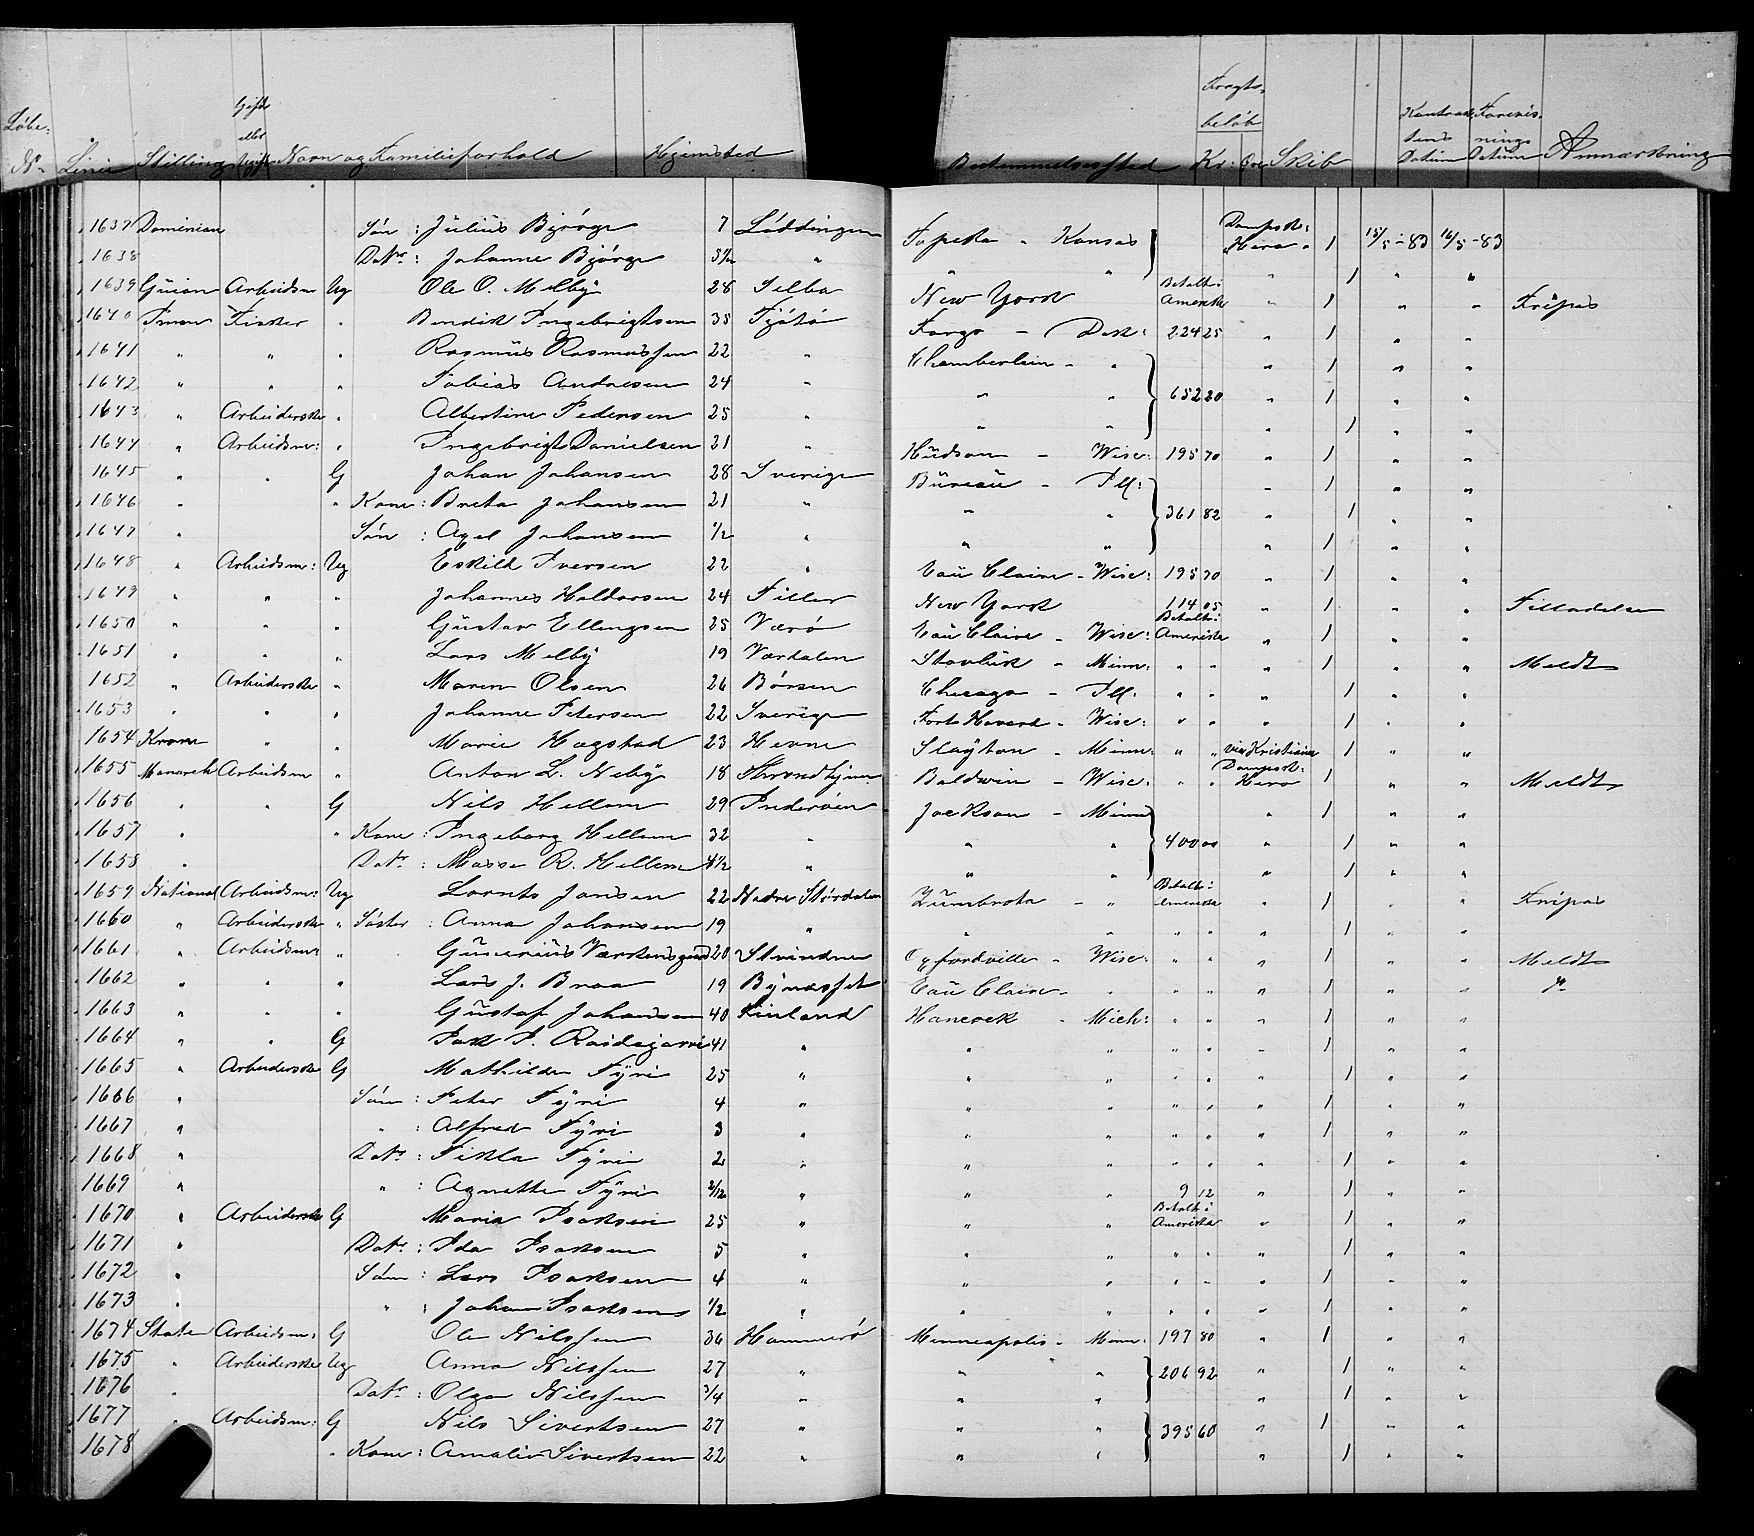 Løbe-
No Linie Stilling Gift eller Ugift Navn og Familieforhold Hjemsted Bestemmelsessted Fragtbeløb Kr: Øre Skib Kontraktens Datum Forevisnings Datum Anmærkning
1637 Dominion Søn : Julius Bjørge 7 Lødingen Topeka - Kansas Dampsk: Hero 1 15/5-83 16/5-83
1638 Datr : Johanne Bjørge " " " " 1 " "
1639 Guion Arbeidsm Ug Ole O. Melby 28 Selbo New York Betalt i Amerika " 1 " "
1640 Inman Fisker " Bendik Ingebrigtsen 35 Tjøtø Fargo - Dak: 224 25 " 1 " "
1641 " " " Rasmus Rasmussen 22 " Chamberlain - " " 1 " "
1642 " " " Tobias Andresen 24 " " " 652 20 " 1 " "
1643 " Arbeiderske " Albertine Pedersen 25 " " " " 1 " "
1644 " Arbeidsm: " Ingebrigt Danielsen 21 " Hudson - Wisc: 195 70 " 1 " "
1645 " " G Johan Johansen 28 Sverige Bureau - Ill: " 1 " "
1646 " " Kone : Breta Johansen 21 " " " 361 82 " 1 " "
1647 " Søn : Axel Johansen 1/2 " " " " 1 " "
1648 " Arbeidsm: Ug Eskild Iversen 22 " Eau Claire - Wisc: 195 70 " 1 " "
1649 " " " Johannes Haldorsen 24 Tiller New York 114 05 " 1 " "
1650 " " " Gustav Ellingsen 25 Værø Eau Claire - Wisc: Betalt i Amerika " 1 " "
1651 " " " Lars Melby 19 Værdalen - Minn: " " " 1 " " Meldt
1652 " Arbeiderske " Maren Olsen 26 Børsen Chicago - Ill: " " " 1 " "
1653 " " " Johanne Petersen 22 Sverige Forts Havard - Wisc: " " " 1 " "
1654 Krone " " Marie Hagstad 23 Hevne Slayton - Minn: " " via Kristiania 1 " "
1655 Monarch Arbeidsm " Anton L. Neby 18 Baldwin - Wisc: " " Dampsk: Hero 1 " " Meldt
1656 " " G Nils Hellem 29 Inderøen Jackson - Minn " 1 " "
1657 " " Kone : Ingeborg Hellem 32 " " " 400 00 " 1 " "
1658 " Datr : R. Hellem " " " " 1 " "
1659 National Arbeidsm: Ug Lornts Jansen 22 Nedre Størdalen Zumbrota - " Betalt i Amerika " 1 " "
1660 " Arbeiderske " Søster : Anna Johansen 19 " " " " " " 1 " "
1661 " Arbeidsm: " 20 Strinden - Wisc: " " " 1 " " Meldt
1662 " " " Lars J. Braa 19 Bynæsset Eau Claire - " " " " 1 " " do
1663 " " " Gustaf Johansen 40 Finland Hancock - Mich: " " " 1 " "
1664 " " G 41 " " " " " " 1 " "
1665 " Arbeiderske G Mathilde Fyri 25 " " " " " " 1 " "
1666 " Søn : Peter Fyri 4 " " " " " " 1 " "
1667 " " : Alfred Fyri 3 " " " " " " 1 " "
1668 " Datr : Tekla Fyri 2 " " " " " " 1 " "
1669 " " : Agnette Fyri 2/12 " " " 9 12 " 1 " "
1670 " Arbeiderske G Maria Isaksen 25 " " " Betalt i Amerika " 1 " "
1671 " Datr : Ida Isaksen 5 " " " " " " 1 " "
1672 " Søn : Lars Isaksen 4 " " " " " " 1 " "
1673 " " : Johan Isaksen 1/2 " " " " " " 1 " "
1674 State Arbeidsm: G Ole Nilssen 36 Hammerø Minneapolis - Minn: 197 80 " 1 " "
1675 " Arbeiderske Ug Anna Nilssen 27 " " " 206 92 " 1 " "
1676 " Datr : Olga Nilssen 3/4 " " " " 1 " "
1677 " Arbeidsm: G Nils Sivertsen 27 " " " 395 60 " 1 " "
1678 " Kone : Amalie Sivertsen 22 " " " " 1 " "